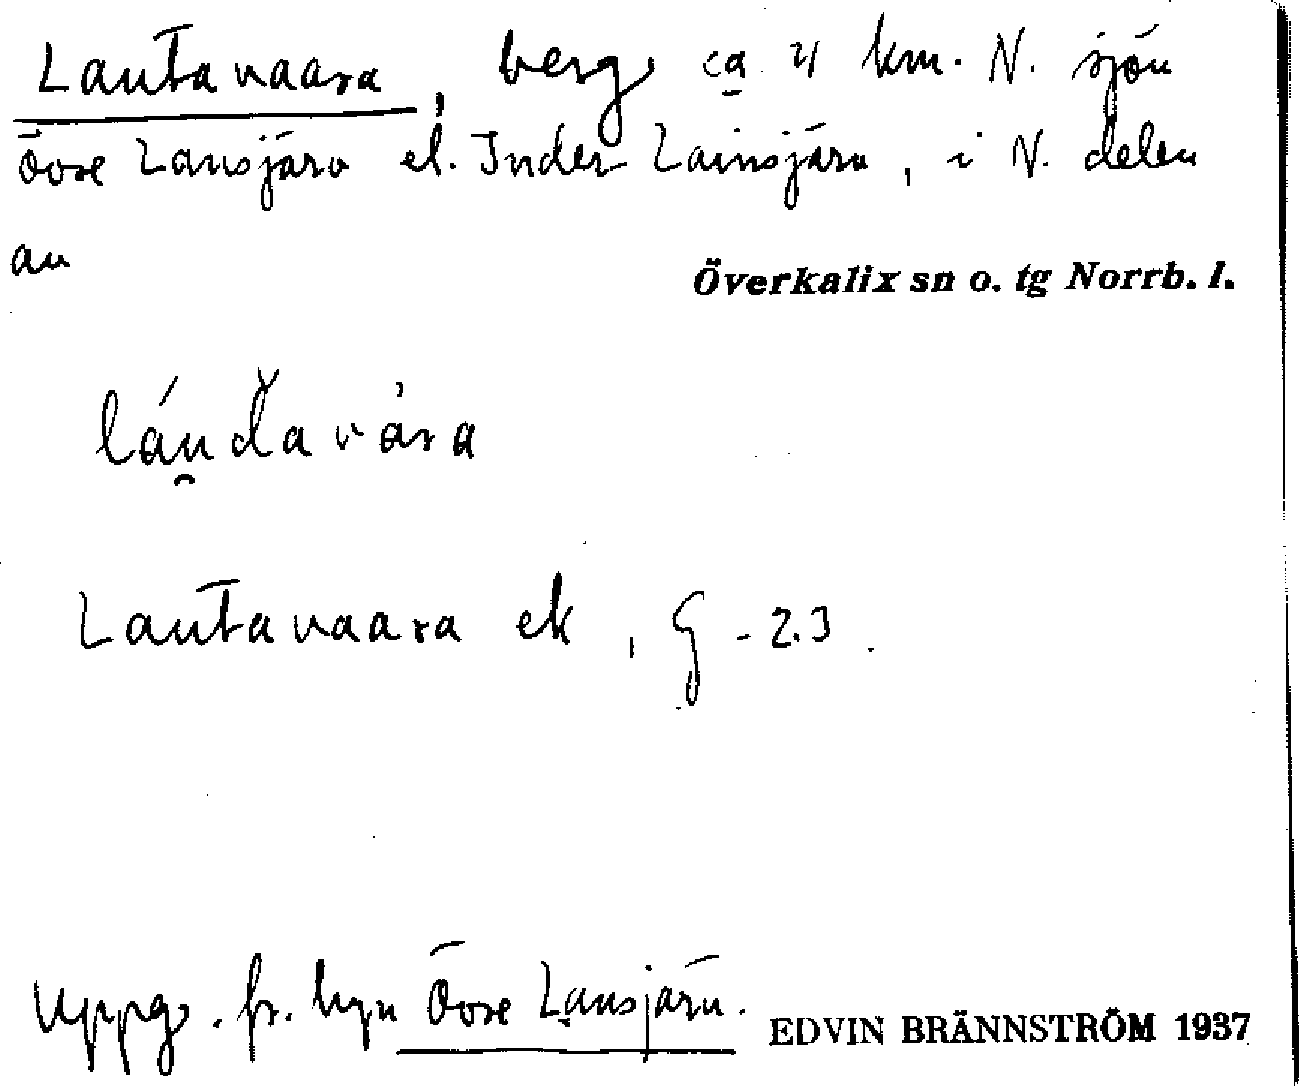 Lautavaara, berg, ca 4 km. N. sjön
Övre Lansjärv el. Inder-Lainsjärv, i N. delen
av
Överkalix sn o. tg Norrb. l.
láu̯ďavàra
Lautavaara ek, G - 2.3.
Uppg. fr. byn Övre Lansjärv.
EDVIN BRÄNNSTRÖM 1937